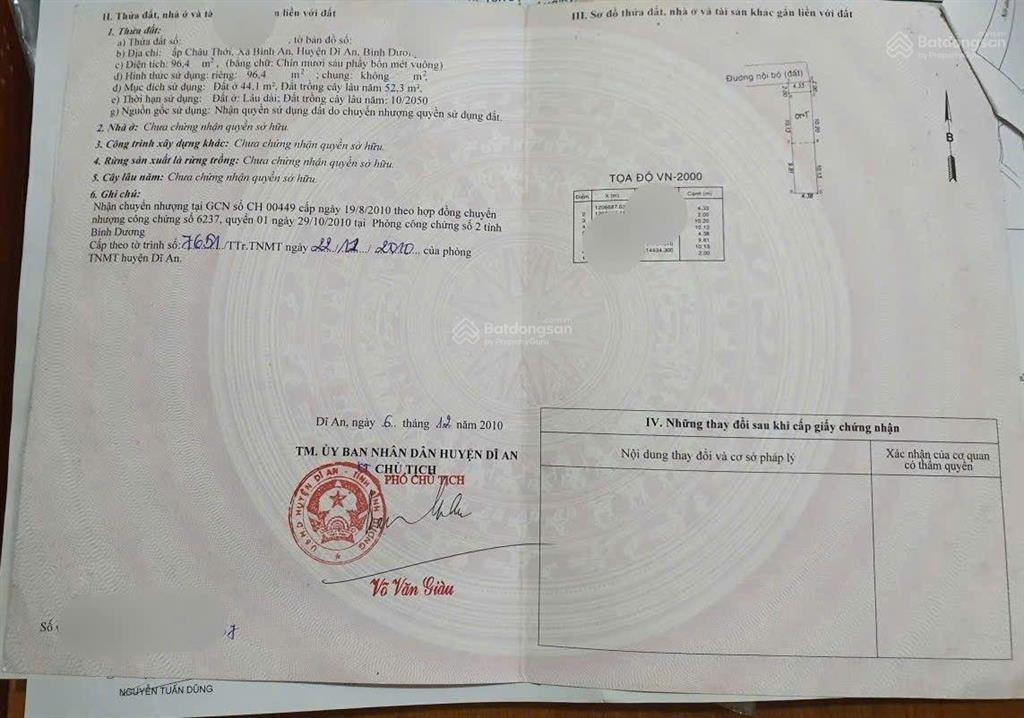 II. Thửa đất, nhà ở và tà n liền với đất
1. Thửa đất:
a) Thửa đất số: , tờ bản đồ số:
b) Địa chỉ: ấp Châu Thới, Xã Bình An, Huyện Dĩ An, Bình Dươ
c) Diện tích: 96,4 m², (bằng chữ: Chín mươi sáu phẩy bốn mét vuông)
d) Hình thức sử dụng: riêng: 96,4 m²; chung: không m².
đ) Mục đích sử dụng: Đất ở 44,1 m², Đất trồng cây lâu năm 52,3 m².
e) Thời hạn sử dụng: Đất ở: Lâu dài; Đất trồng cây lâu năm: 10/2050
g) Nguồn gốc sử dụng: Nhận quyền sử dụng đất do chuyển nhượng quyền sử dụng đất.
2. Nhà ở: Chưa chứng nhận quyền sở hữu.
3. Công trình xây dựng khác: Chưa chứng nhận quyền sở hữu.
4. Rừng sản xuất là rừng trồng: Chưa chứng nhận quyền sở hữu.
5. Cây lâu năm: Chưa chứng nhận quyền sở hữu.
6. Ghi chú:
Nhận chuyển nhượng tại GCN số CH 00449 cấp ngày 19/8/2010 theo hợp đồng chuyển
nhượng công chứng số 6237, quyển 01 ngày 29/10/2010 tại Phòng công chứng số 2 tỉnh
Bình Dương
Cấp theo tờ trình số: 7651/TTr.TNMT ngày 22/12/2010 của phòng
TNMT huyện Dĩ An.
Dĩ An, ngày 6 tháng 12 năm 2010
TM. ỦY BAN NHÂN DÂN HUYỆN DĨ AN
KT CHỦ TỊCH
PHÓ CHỦ TỊCH
U.B.N.D HUYỆN DĨ AN - TỈNH BÌNH DƯƠNG
Võ Văn Giàu
Số
NGUYỄN TUẤN DŨNG
III. Sơ đồ thửa đất, nhà ở và tài sản khác gắn liền với đất
Đường nội bộ (đất)
4.33
2.00
2.00
10.13
10.20
9.81
10.13
4.38
B
TỌA ĐỘ VN-2000
Điểm X (m) Cạnh (m)
4.33
2.00
10.20
10.13
4.38
9.81
10.13
2.00
IV. Những thay đổi sau khi cấp giấy chứng nhận
Nội dung thay đổi và cơ sở pháp lý
Xác nhận của cơ quan
có thẩm quyền
Batdongsan
.com.vn
by PropertyGuru
Batdongsan
.com.vn
by PropertyGuru